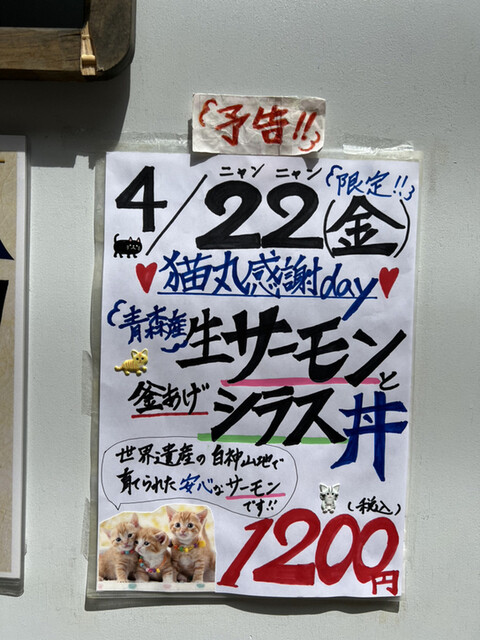 予告!!
ニャン ニャン
4/22(金) 限定!!
猫丸感謝day
青森産 生サーモンと
釜あげ シラス丼
世界遺産の白神山地で
育てられた安心なサーモン
です!!
(税込)
1200円